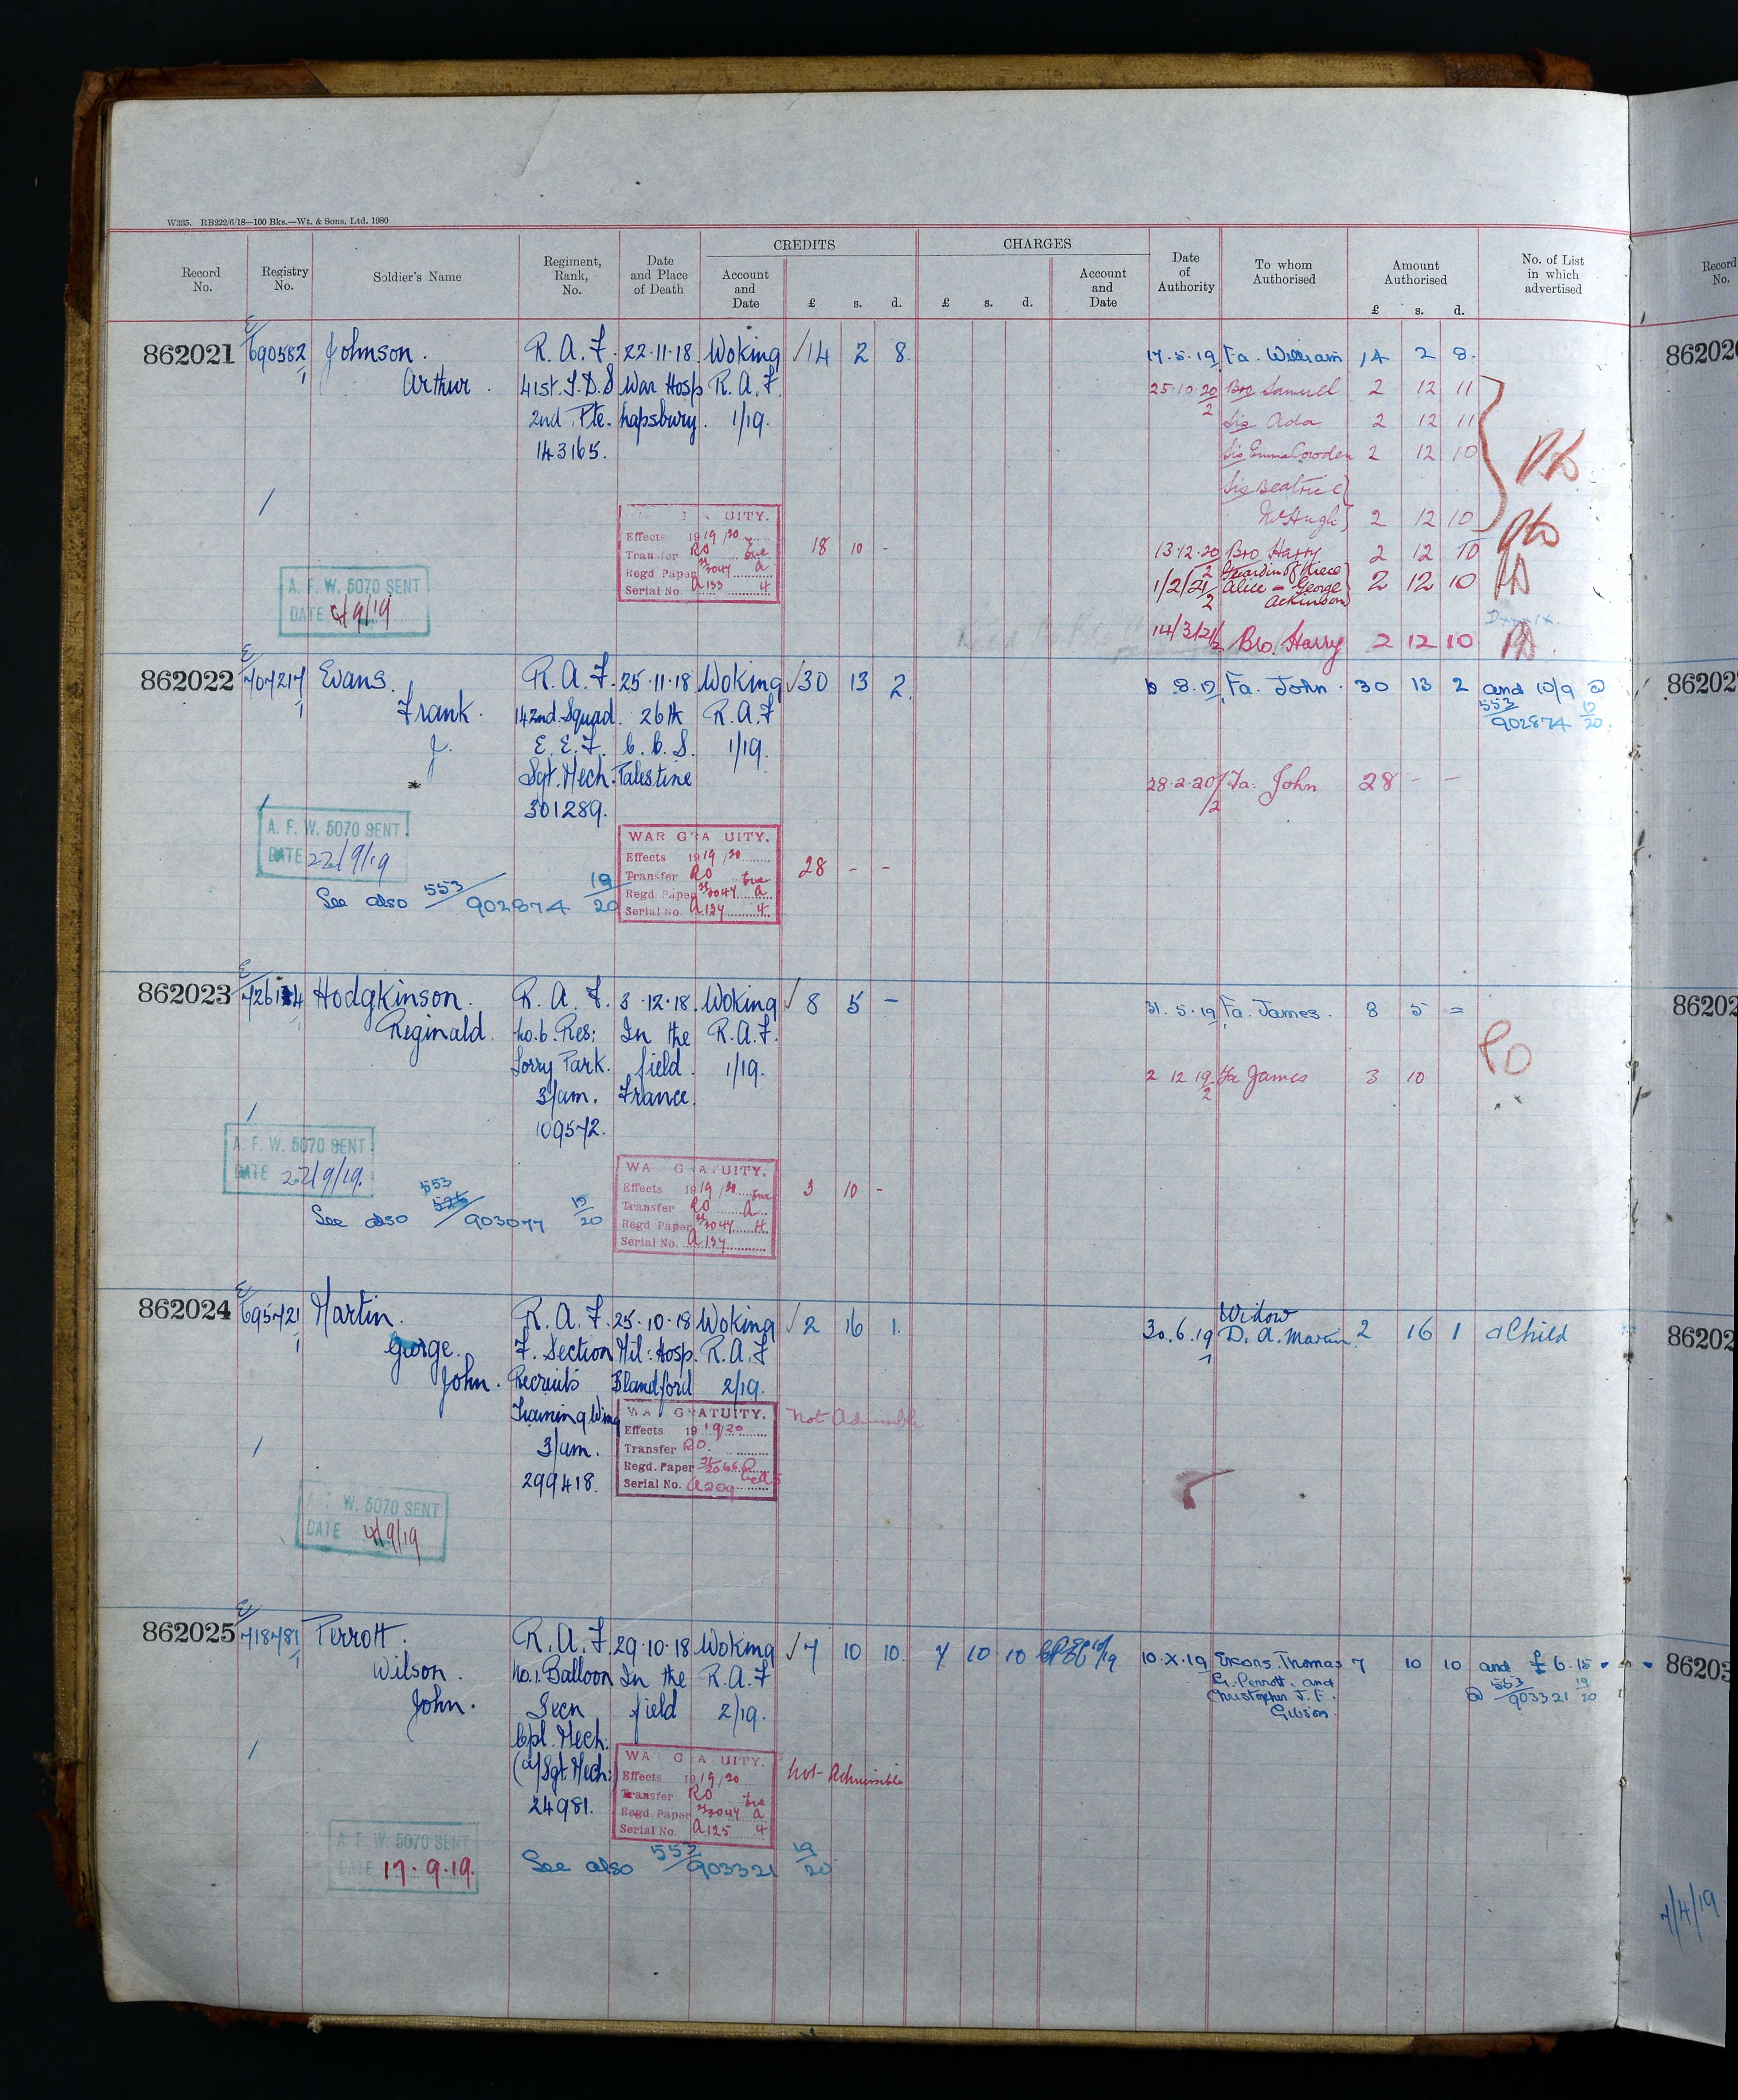 W335. RB222/6/18—100 Bks.—Wt. & Sons, Ltd. 1980
CREDITS CHARGES
Record No. Registry No. Soldier's Name Regiment, Rank, No. Date and Place of Death Account and Date £ s. d. £ s. d. Account and Date Date of Authority To whom Authorised Amount Authorised £ s. d. No. of List in which advertised
Record No.
862021 E/690582/1 Johnson. R. A. F. 22.11.18. Woking √14 2 8. 17.5.19 Fa. William 14 2 8.
Arthur. 41st. T.D.S War Hosp R.A.F. 25.10.20/2 Bro Samuel 2 12 11
2nd Pte. Napsbury. 1/19. Sis Ada 2 12 11
143165. Sis Emma Cowden 2 12 10
Sis Beatrice
McHugh 2 12 10
UITY.
Effects 1919/20
Transfer RO
Regd Paper
Serial No. A133 4
18 10 -
13.12.20/2 Bro Harry 2 12 10
1/2/21/2 Guardian of Niece
Alice - George 2 12 10
Ackinson
14/3/21/2 Bro. Harry 2 12 10
A. F. W. 5070 SENT
DATE 4/9/19
862022 E/707217/1 Evans. R.A.F. 25.11.18 Woking √30 13 2. 8.19 Fa. John. 30 13 2 and 10/9 @
Frank. 142nd. Squad. 26th R.A.F 553/902874 19/20.
J. E.E.F. C.C.S. 1/19.
Sgt. Mech. Palestine
301289.
28.2.20/2 Fa. John 28 - -
A. F. W. 5070 SENT
DATE 22/9/19
WAR GRA UITY.
Effects 1919/20
Transfer RO
Regd Paper
Serial No. A134 4
28 - -
See also 553/902874 19/20
862023 E/726134 Hodgkinson. R.A.F. 3.12.18. Woking √8 5 - 31.5.19 Fa. James. 8 5 =
Reginald. No.6.Res: In the R.A.F.
Lorry Park. field. 1/19.
3/am. France.
109572.
2 12 19/2 Fa James 3 10
PO
A. F. W. 5070 SENT
DATE 22/9/19.
WA G A UITY.
Effects 1919/20
Transfer RO
Regd Paper
Serial No. A134
3 10 -
See also 553/903077 19/20
862024 E/695721/1 Martin. R.A.F. 25.10.18 Woking √2 16 1. 30.6.19 Widow
D. A. Martin 2 16 1 a Child
George. F. Section Mil: Hosp. R.A.F
John. Recruits Blandford 2/19.
Training Wing
3/am.
299418.
WA GRATUITY.
Effects 1919/20
Transfer RO.
Regd. Paper
Serial No. A209
Not Admissible
W. 5070 SENT
DATE 4/9/19
862025 E/718781/1 Perrott. R.A.F. 29.10.18 Woking √7 10 10. 7 10 10 10.X.19 Excors. Thomas 7 10 10 and £6.15
Wilson. No.1.Balloon In the R.A.F G. Perrott. and @ 553/903321 19/20
John. Secn field 2/19. Christopher J.F.
Gibson.
Cpl. Mech:
(a/Sgt. Mech:)
24981.
WA G A UITY.
Effects 1919/20
Transfer RO
Regd. Paper
Serial No. A125 4
Not Admissible
A. F. W. 5070 SENT
DATE 17.9.19.
See also 553/903321 19/20
7/4/19